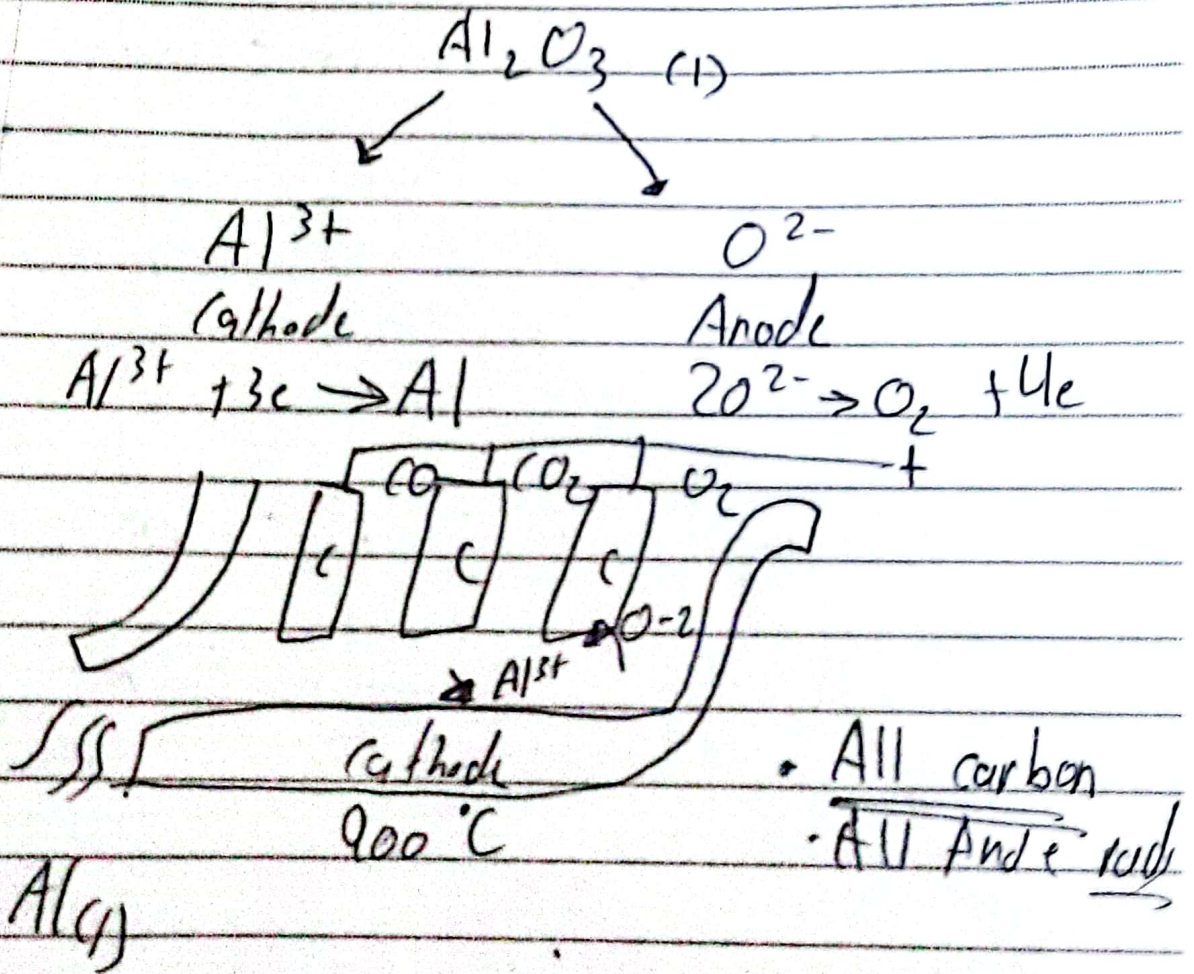 Al₂O₃ (l)
Al³⁺ O²⁻
Cathode Anode
Al³⁺ +3e → Al 2O²⁻ → O₂ +4e
CO CO₂ O₂ +
C C C
O-2
Al³⁺
Cathode
900°C
Al(l)
• All carbon
• All Ande rods